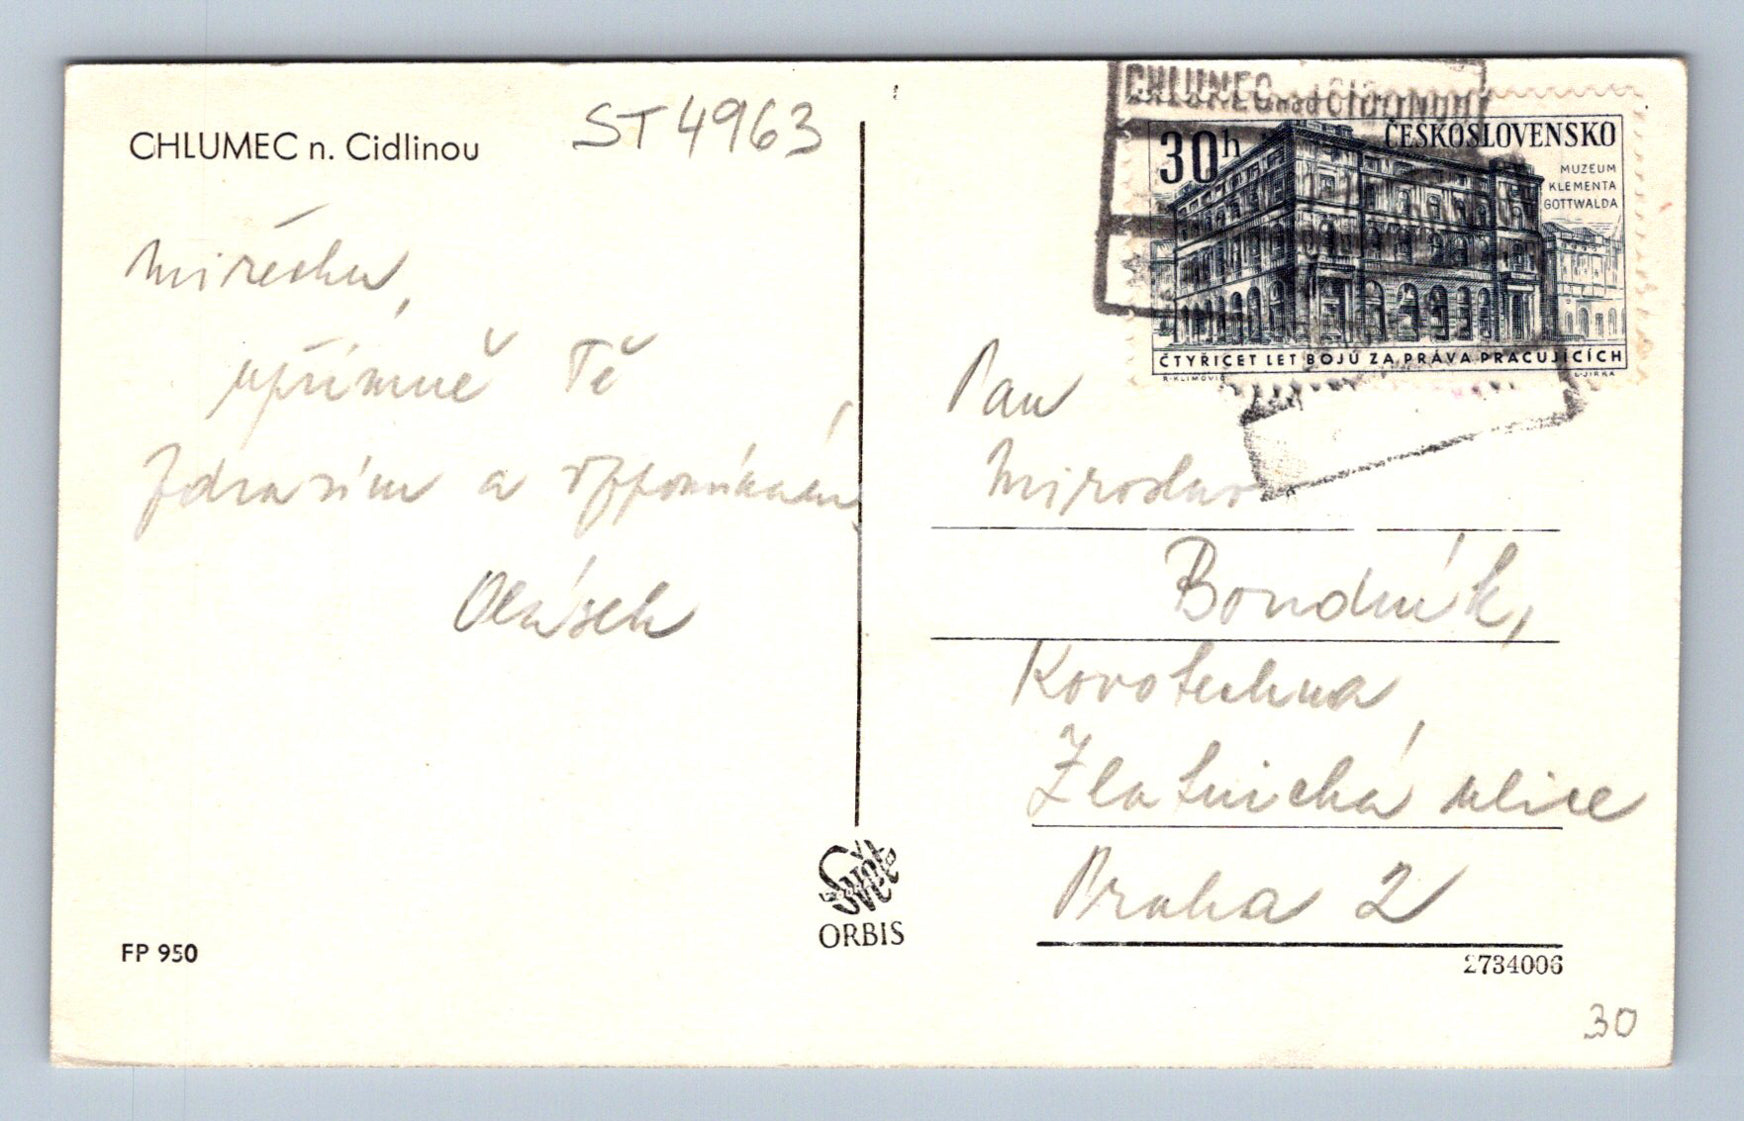 CHLUMEC n. Cidlinou
ST 4963
Mirečku,
upřímně Tě
zdravím a vzpomínám
CHLUMEC nad CIDLINOU
30h
ČESKOSLOVENSKO
MUZEUM
KLEMENTA
GOTTWALDA
ČTYŘICET LET BOJŮ ZA PRÁVA PRACUJÍCÍCH
R. KLIMOVIČ
L. JIRKA
Pan
Miroslav
Kovotechna
Zlatnická ulice
Praha 2
Svět
ORBIS
FP 950
2734006
30